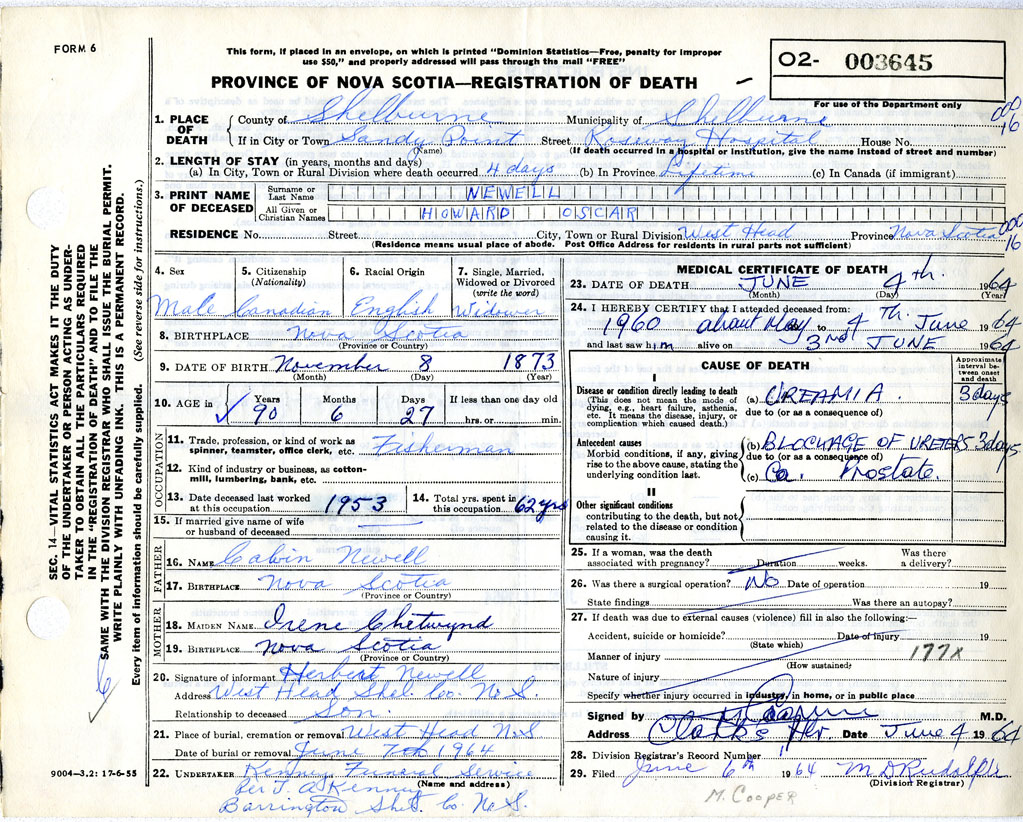 FORM 6
This form, if placed in an envelope, on which is printed "Dominion Statistics—Free, penalty for improper
use $50," and properly addressed will pass through the mail "FREE"
PROVINCE OF NOVA SCOTIA—REGISTRATION OF DEATH
O2- 003645
For use of the Department only
000
16
1. PLACE OF DEATH
County of Shelburne Municipality of Shelburne
If in City or Town Sandy Point Street Roseway Hospital House No.
(Name) (If death occurred in a hospital or institution, give the name instead of street and number)
2. LENGTH OF STAY (in years, months and days)
(a) In City, Town or Rural Division where death occurred 4 days (b) In Province Lifetime (c) In Canada (if immigrant)
3. PRINT NAME OF DECEASED
Surname or Last Name NEWELL
All Given or Christian Names HOWARD OSCAR
000
16
RESIDENCE No. Street City, Town or Rural Division West Head Province Nova Scotia
(Residence means usual place of abode. Post Office Address for residents in rural parts not sufficient)
4. Sex
Male
5. Citizenship (Nationality)
Canadian
6. Racial Origin
English
7. Single, Married, Widowed or Divorced (write the word)
Widower
8. BIRTHPLACE Nova Scotia
(Province or Country)
9. DATE OF BIRTH November 8 1873
(Month) (Day) (Year)
10. AGE in Years Months Days If less than one day old
90 6 27 hrs. or min.
OCCUPATION
11. Trade, profession, or kind of work as spinner, teamster, office clerk, etc. Fisherman
12. Kind of industry or business, as cotton-mill, lumbering, bank, etc.
13. Date deceased last worked at this occupation 1953
14. Total yrs. spent in this occupation 62 yrs
15. If married give name of wife or husband of deceased
FATHER
16. NAME Calvin Newell
17. BIRTHPLACE Nova Scotia
(Province or Country)
MOTHER
18. MAIDEN NAME Irene Chetwynd
19. BIRTHPLACE Nova Scotia
(Province or Country)
20. Signature of informant Herbert Newell
Address West Head Shel. Co. N.S.
Relationship to deceased Son.
21. Place of burial, cremation or removal West Head N.S
Date of burial or removal June 7th 1964
22. UNDERTAKER Kenney Funeral Service
(Name and address)
Per J. A. Kenney
Barrington Shel. Co. N.S.
9004—3.2: 17-6-55
MEDICAL CERTIFICATE OF DEATH
23. DATE OF DEATH JUNE 4th. 1964
(Month) (Day) (Year)
24. I HEREBY CERTIFY that I attended deceased from:
1960 about May to 4th. June 1964
and last saw him alive on 3rd JUNE 1964
CAUSE OF DEATH
Approximate interval between onset and death
I
Disease or condition directly leading to death
(This does not mean the mode of dying, e.g., heart failure, asthenia, etc. It means the disease, injury, or complication which caused death.)
(a) UREAMIA. 3 days
due to (or as a consequence of)
Antecedent causes
Morbid conditions, if any, giving rise to the above cause, stating the underlying condition last.
(b) BLOCKAGE OF URETERS 3 days.
due to (or as a consequence of)
(c) Ca. Prostate.
II
Other significant conditions
contributing to the death, but not related to the disease or condition causing it.
25. If a woman, was the death associated with pregnancy? Duration weeks. Was there a delivery?
26. Was there a surgical operation? No Date of operation 19
State findings Was there an autopsy?
27. If death was due to external causes (violence) fill in also the following:—
Accident, suicide or homicide? Date of injury 19
(State which)
Manner of injury 177X
(How sustained)
Nature of injury
Specify whether injury occurred in industry, in home, or in public place
Signed by M.D.
Address Clarks Hbr. Date June 4 1964
28. Division Registrar's Record Number
29. Filed June 6th 1964 M D Rudolph
(Division Registrar)
M. COOPER
SEC. 14—VITAL STATISTICS ACT MAKES IT THE DUTY
OF THE UNDERTAKER OR PERSON ACTING AS UNDER-
TAKER TO OBTAIN ALL THE PARTICULARS REQUIRED
IN THE "REGISTRATION OF DEATH" AND TO FILE THE
SAME WITH THE DIVISION REGISTRAR WHO SHALL ISSUE THE BURIAL PERMIT.
WRITE PLAINLY WITH UNFADING INK. THIS IS A PERMANENT RECORD.
Every item of information should be carefully supplied. (See reverse side for instructions.)